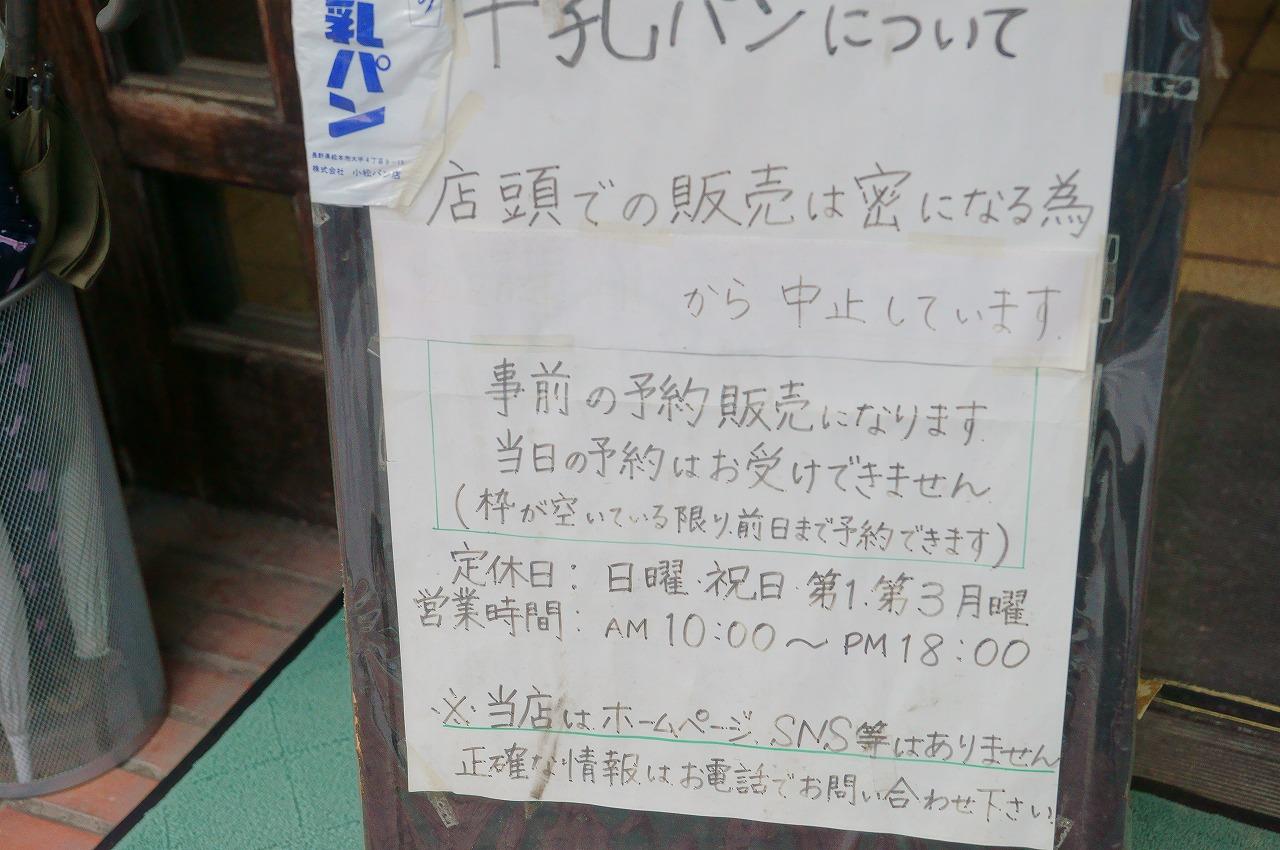 乳パン
長野県松本市大手4丁目9-13
株式会社 小松パン店
牛乳パンについて
店頭での販売は密になる為
から 中止しています.
事前の予約販売になります.
当日の予約はお受けできません.
(枠が空いている限り、前日まで予約できます)
定休日: 日曜・祝日・第1.第3月曜
営業時間: AM 10:00〜PM 18:00
※当店はホームページ、SNS等はありません
正確な情報はお電話でお問い合わせ下さい.